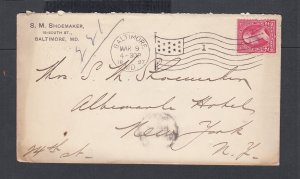 S. M. SHOEMAKER,
10 SOUTH ST.
BALTIMORE, MD.
BALTIMORE
MAR 9
4-30P
MD. 97
1
Mrs. S. M. Shoemaker
Albemarle Hotel
New York
N. Y.
24th St.